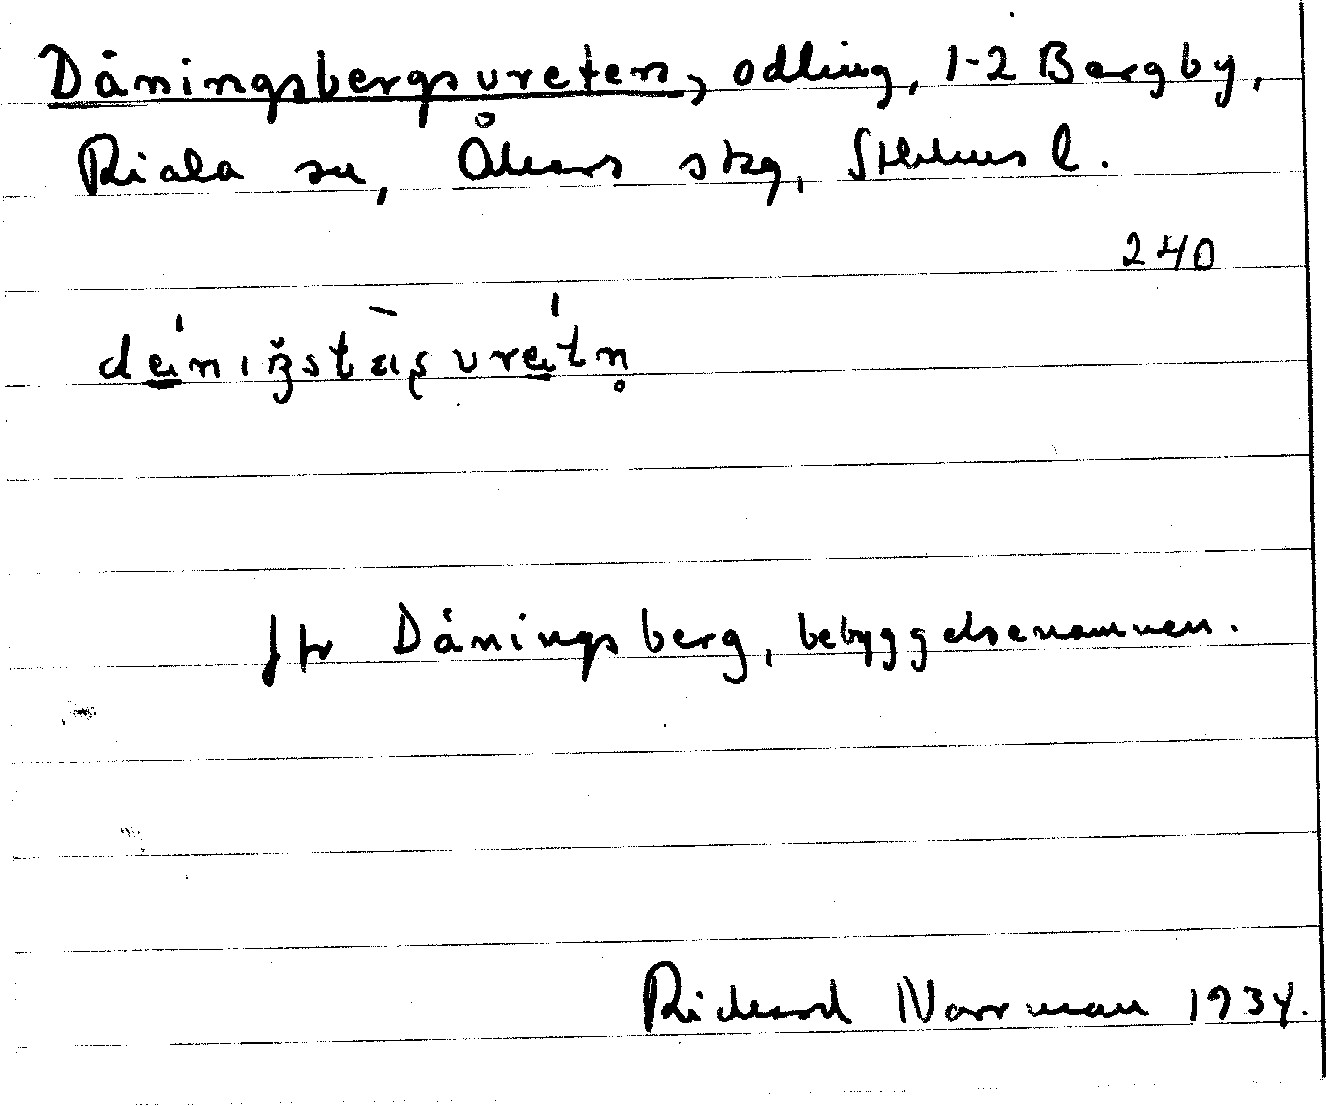 Dåningsbergsvreten, odling, 1-2 Bergby,
Riala sn, Åkers skg, Sthlms l.
240
Jfr Dåningsberg, bebyggelsenamnen.
Richard Norrman 1934.